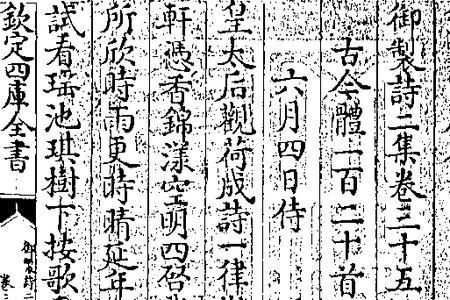 御製詩二集卷三十五
古今體一百二十首
六月四日侍
皇太后觀荷成詩一律
軒憑香錦漾空明四啓
所欣時雨更時晴延年
試看瑶池琪樹下按歌
欽定四庫全書
御製詩二
卷三